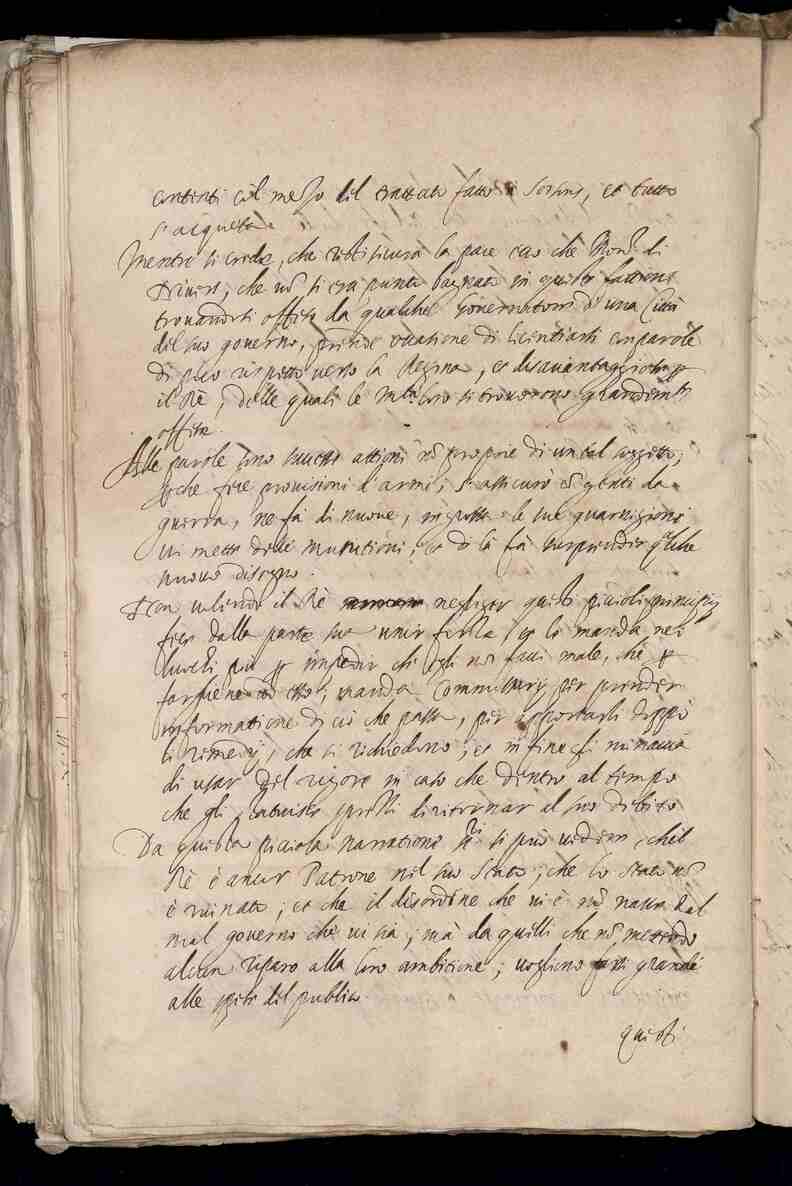 contenti col mezzo del trattato fatto à Soissons, et tutto
s'acqueta.
Mentre si crede, che resti sicura la pace ecco che Mons.r di
Nivers, che nõ si era punto bagnato in queste fattioni
trovandosi offeso da qualche Governatore d'una Città
del suo governo, prende occasione di licentiarsi in parole
di poco rispetto verso la Regina, et disavantaggiose p
il Rè, delle quali le M.tà loro si trovorono grandem.te
offese.
Alle parole sono successe attioni nõ proprie di un tal soggetto,
perche fece provisioni d'armi, s'assicurò di genti da
guerra, ne fà di nuove, ingrossa le sue guarnigioni
vi mette delle munitioni, et di là fà sorprender qualche
nuovo disegno.
Non volendo il Rè negliger questi piccioli principij
fece dalla parte sua unir forza, et le manda nei
luochi più p impedir ch'egli nõ facci male, che p
farliene ad esso, manda Commissarij per prender
informatione di ciò che passa, per apportarli doppò
li rimedij, che si richiedono, et in fine li minaccia
di usar del rigore in caso che dentro al tempo
che gli statuisce, presti di ritornar al suo debito
Da questa picciola narratione si può vedere, che il
Rè è ancor Patrone nel suo stato, che lo stato nõ
è ruinato, et che il disordine che vi è nõ nasce dal
mal governo che vi sia, mà da quelli che nõ mettendo
alcun riparo alla loro ambitione, vogliono farsi grandi
alle spese del publico.
questi